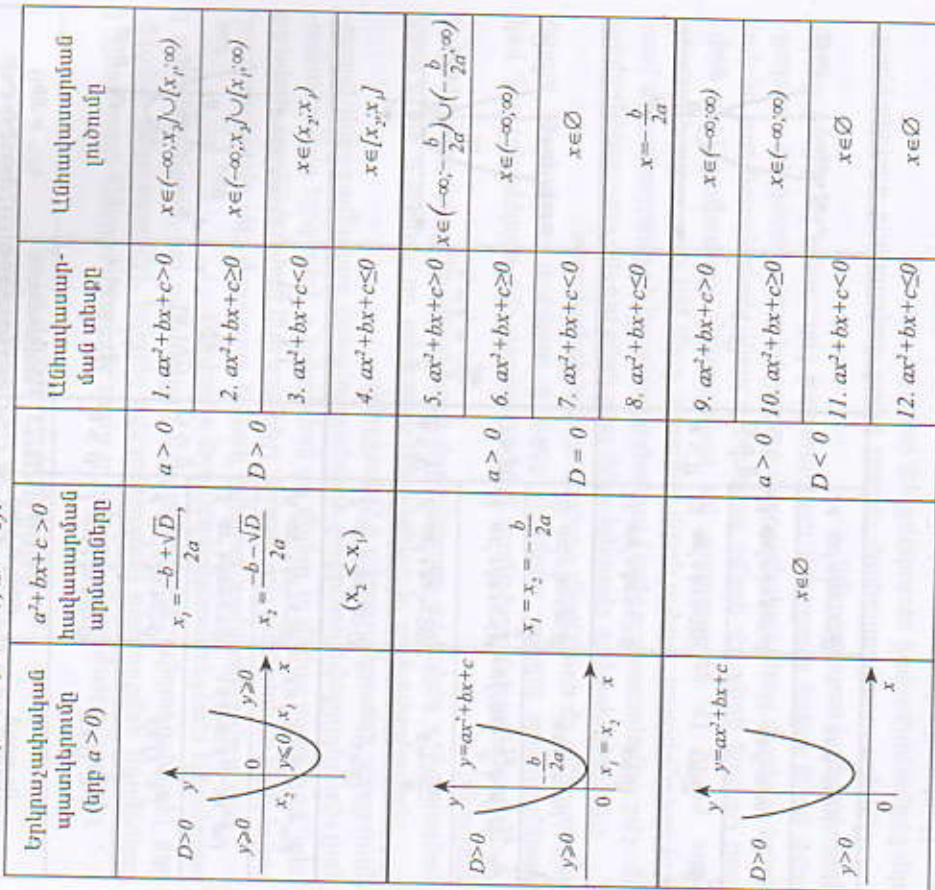 Երկրաչափական
մոտեցում
(եթե a > 0)
a²+bx+c >0
հավասարման
արմատները
Անհավասար-
ման տեսքը
Անհավասարման
լուծումը
D>0
y
y⩾0
0
y⩽0
x₂
x₁
x
x₁ = (-b + √D)/2a,
x₂ = (-b – √D)/2a
(x₂ < x₁)
a > 0
D > 0
1. ax²+bx+c>0
x∈(–∞;x₂]∪[x₁;∞)
2. ax²+bx+c≥0
x∈(–∞;x₂]∪[x₁;∞)
3. ax²+bx+c<0
x∈(x₂;x₁)
4. ax²+bx+c≤0
x∈[x₂;x₁]
y
y=ax²+bx+c
D>0
–b/2a
y⩾0
0
x₁ = x₂
x
x₁ = x₂ = –b/2a
a > 0
D = 0
5. ax²+bx+c>0
x∈(–∞;–b/2a)∪(–b/2a;∞)
6. ax²+bx+c≥0
x∈(–∞;∞)
7. ax²+bx+c<0
x∈∅
8. ax²+bx+c≤0
x=–b/2a
y
y=ax²+bx+c
D>0
y>0
0
x
x∈∅
a > 0
D < 0
9. ax²+bx+c>0
x∈(–∞;∞)
10. ax²+bx+c≥0
x∈(–∞;∞)
11. ax²+bx+c<0
x∈∅
12. ax²+bx+c≤0
x∈∅